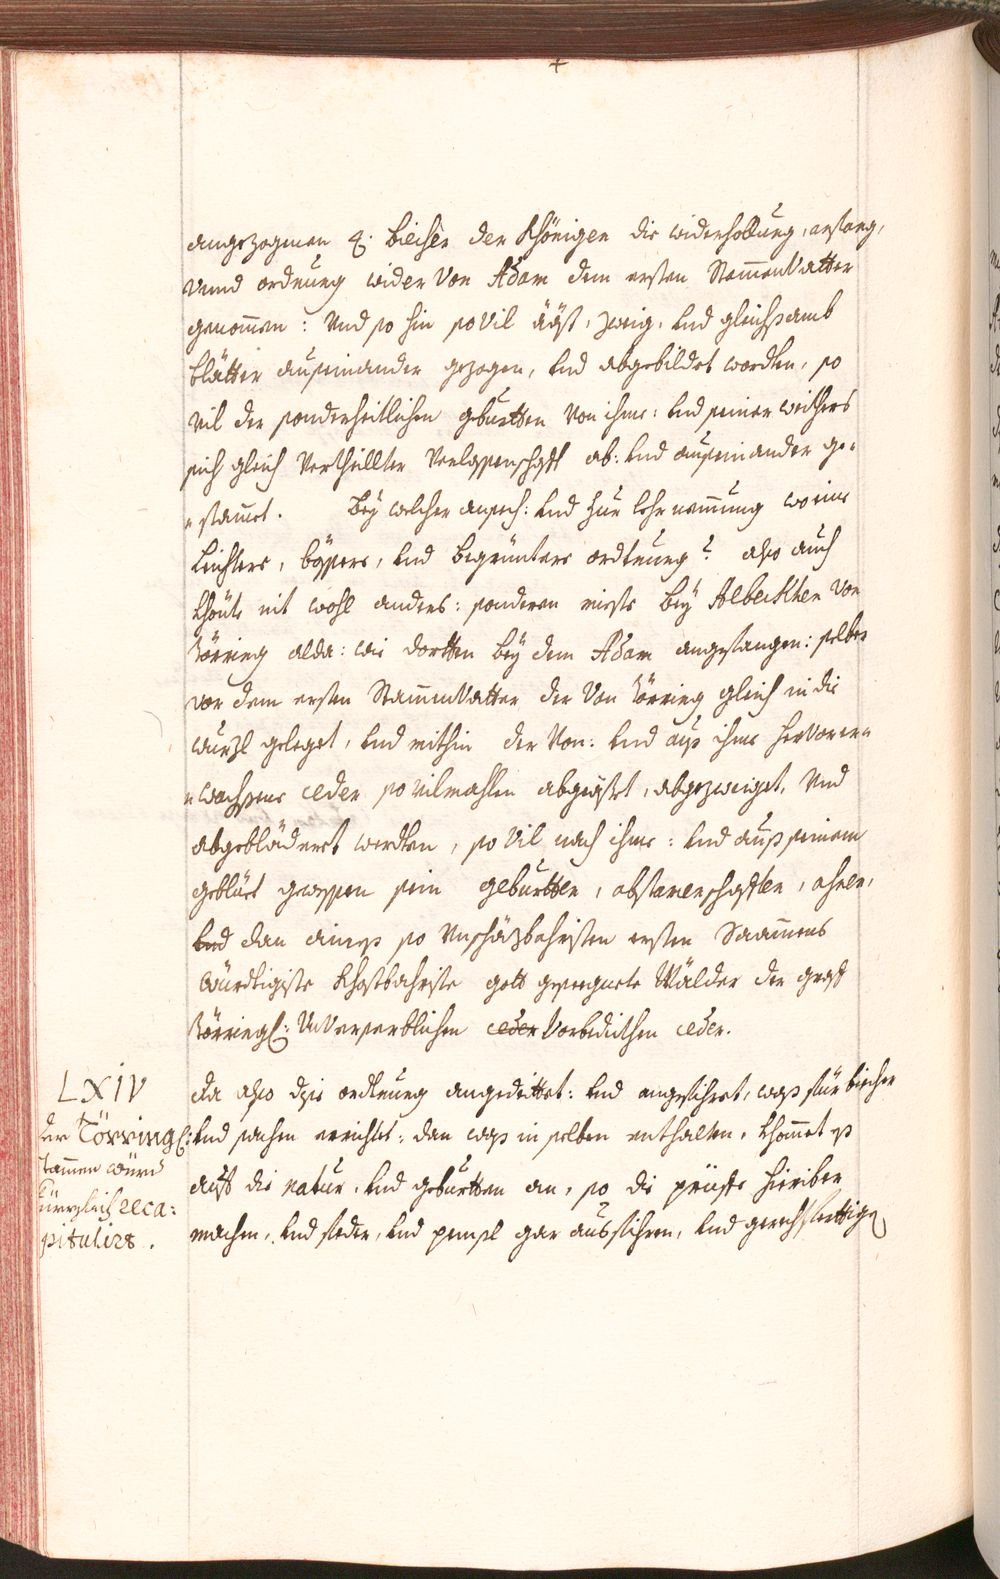 angezogenen 4. biecher der Khönigen die widerhollung, anfang,
vnnd ordnung wider von Adam dem ersten Stammenvatter
genommen: Vnd so hin so vil ääst, zweig, vnd gleichsamb
blätter auseinander gezogen, vnd abgebildet worden, so
vil der sonderheitlichen geburtten von ihme: vnd seiner weithers
sich gleich vertheillter verlassenschafft ab: vnd auseinander ge=
=stamet. Bey welcher ansech: vnd zur lehr nemmung wo eine
leichtere, bössere, vnd begrüntere ordtnung? also auch
khönte nit wohl anders: sonderen mieste bey Albeckhen von
Törring alda: wie dortten bey dem Adam angefangen: selber
vor dem ersten Stammenvatter der von Törring gleich in die
wurzl geleget, vnd mithin der von: vnd aus ihme hervorer=
=wachsene ceder so vilmahlen abgeästet, abgezweiget, vnd
abgeblädert werden, so vil nach ihme: vnd aus seinem
geblüet gewessen sein geburtten, abstamenschafften, ahnen,
vnd dan aines so vnschäzbahristen ersten Saamens
würdtigiste khostbahriste gott geeregnete Wälder der graff
Törringl: Vnversterblichen ceder vorbedeithen ceder.
LXIV
der Törringl:
stammen würd
kürzlich reca:
pituliert.
Da also dise ordtnung angedeittet: vnd angefihret, was für biecher
vnd sachen errichtet: dan was in selben enthalten, khommet es
auff die natur, vnd geburtten an, so die prüeffe hieriber
machen, vnd feder, vnd pemsl gar ausfihren, vnd gerechtfertigen